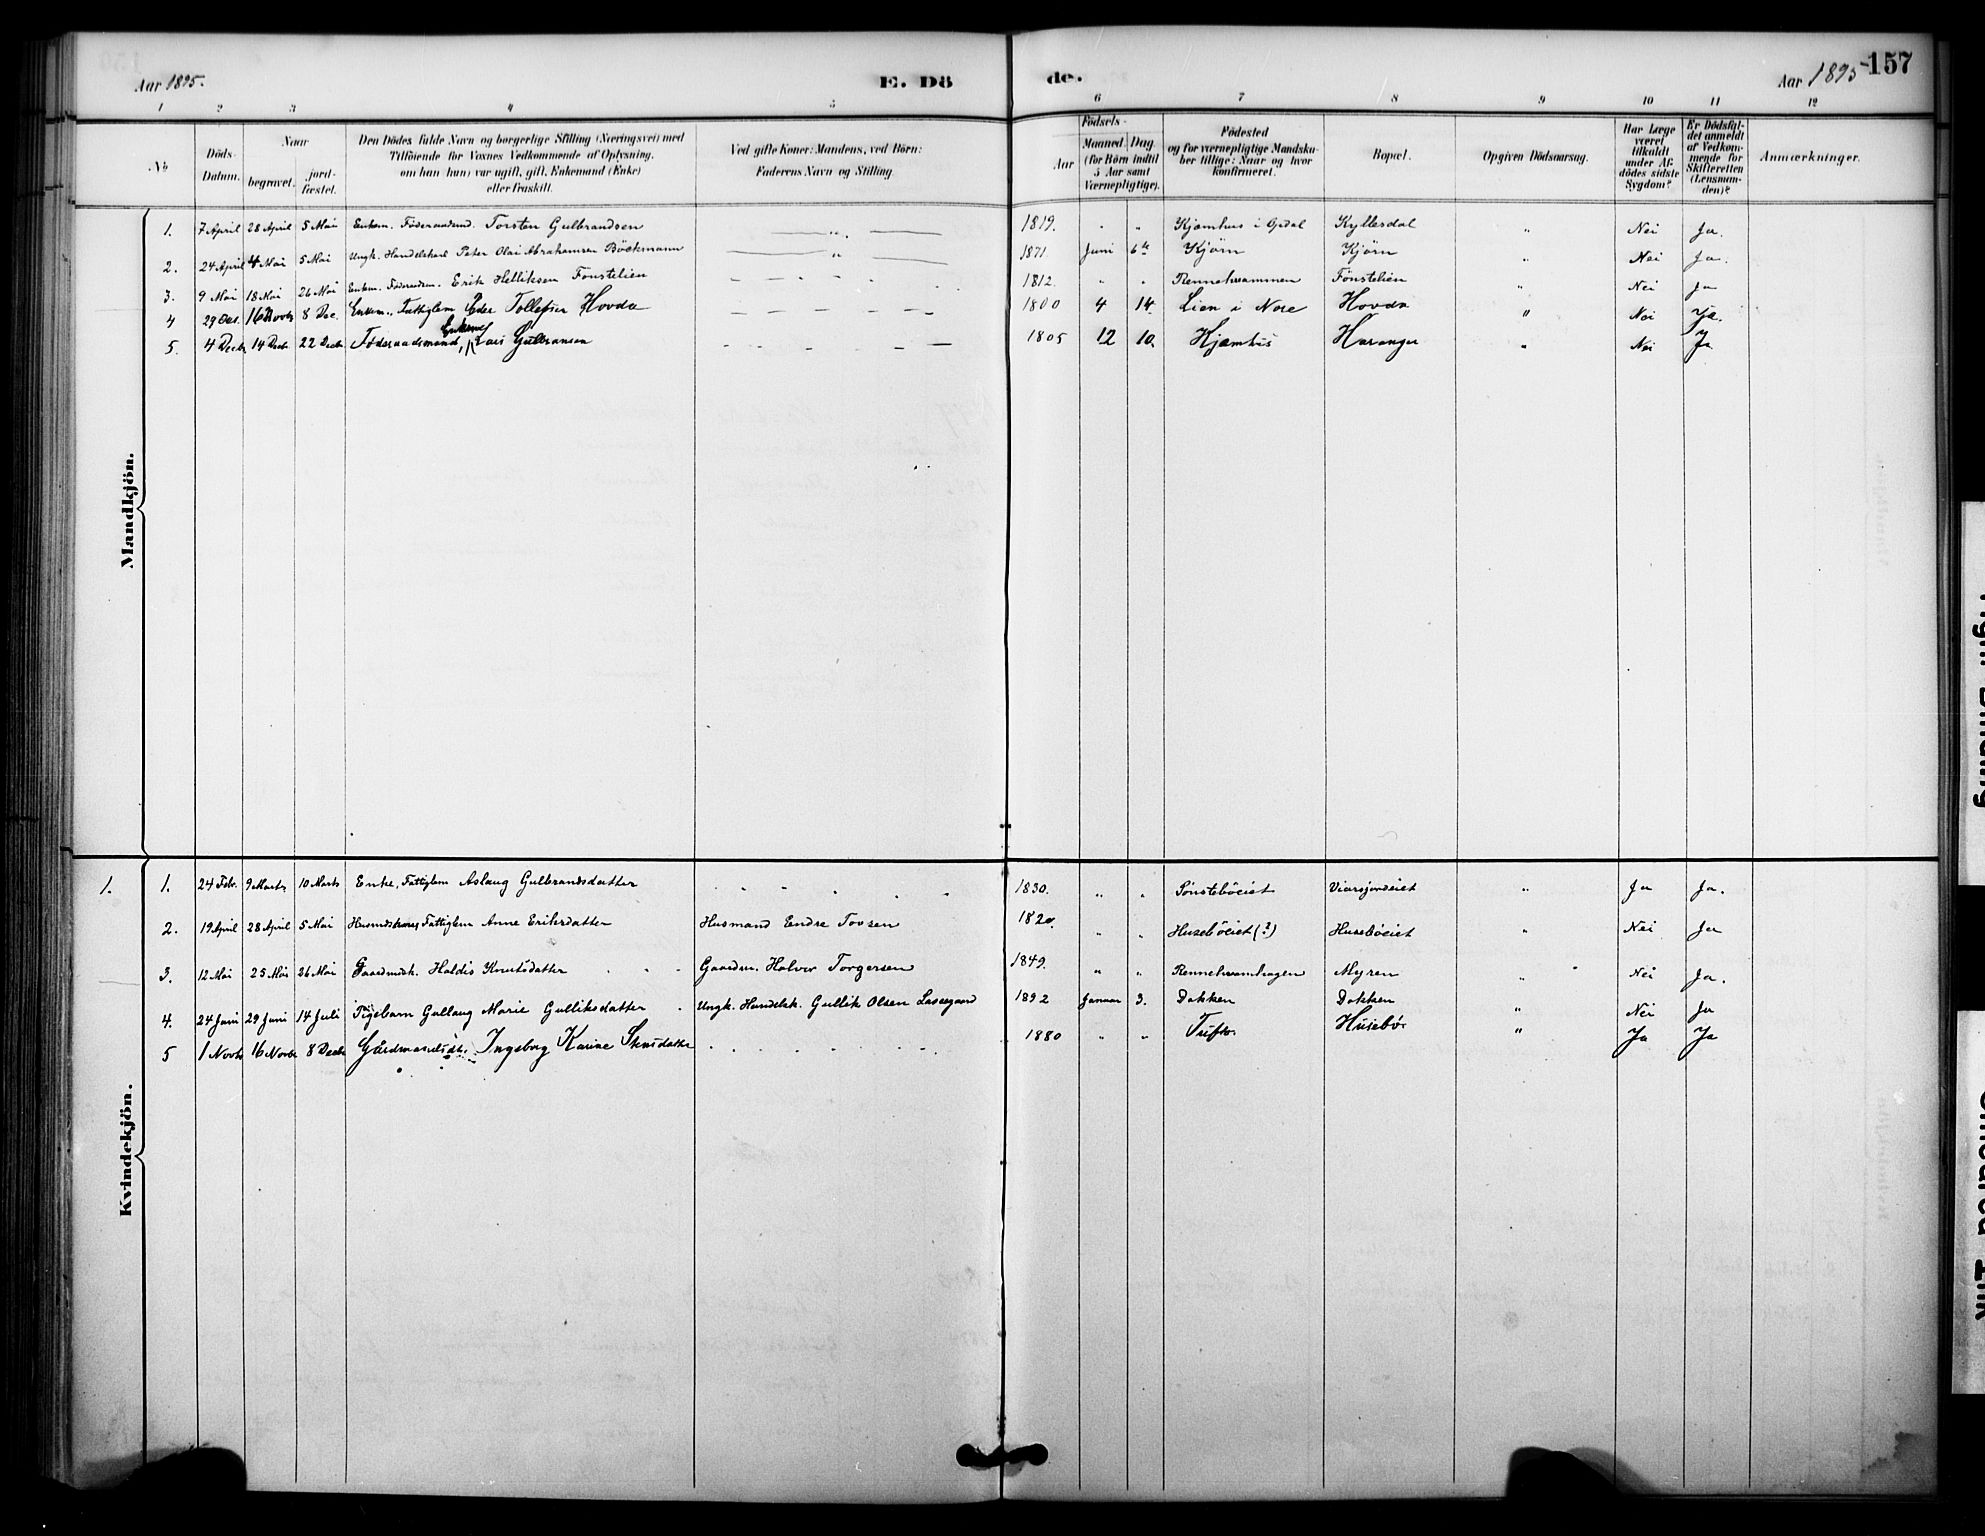 Aar 1895. E. Dö de. Aar 1895 157
1 2 3 4 5 6 7 8 9 10 11 12
No
Döds-Datum.
Naar
begravet.
jord-fæstet.
Den Dödes fulde Navn og borgerlige Stilling (Næringsvei) med
Tilföiende for Voxnes Vedkommende af Oplysning,
om han (hun) var ugift, gift, Enkemand (Enke)
eller fraskilt.
Ved gifte Koner: Mandens, ved Börn:
Faderens Navn og Stilling.
Födsels-
Aar
Maaned Dag
(for Börn indtil
5 Aar samt
Værnepligtige).
Födested
og for værnepligtige Mandskaber tillige: Naar og hvor
konfirmeret.
Bopæl.
Opgiven Dödsaarsag.
Har Læge
været
tilkaldt
under Af-
dödes sidste
Sygdom?
Er Dödsfal-
det anmeldt
af Vedkom-
mende for
Skifteretten
(Lensman-
den)?
Anmærkninger.
Mandkjön.
1. 7 April 28 April 5 Mai Enkem. Föderaadsmd. Torsten Gulbrandsen — " — 1819. " " Kjømhus i Opdal Kyllesdal Nei Ja.
2. 24 April 4 Mai 5 Mai Ungk. Handelskarl Peter Olai Abrahamsen Böckmann — " — 1871 Juni 6te Kjörn Kjörn " Nei Ja.
3. 9 Mai 18 Mai 26 Mai Enkem. Föderaadsm. Erik Helliksen Fönstelien 1812. " " Rennehvammen Fönstelien " Nei Ja
4 29 Oct. 16 Novbr 8 Dec. Enkem., Fattiglem Peder Tollefsen Hovda 1800 4 14. Lien i Nore Hovda " Nei Ja.
5. 4 Decbr 14 Decbr 22 Decbr Føderaadsmand, Enkemd Lars Gulbransen 1805 12 10. Kjømhus Haranger " Nei Ja
Kvindekjön.
1. 1. 24 Febr. 9 Marts 10 Marts Enke, Fattiglem Aslaug Gulbrandsdatter 1830. " " Sönsteböeiet Viersjordeiet " Ja Ja.
2. 19 April 28 April 5 Mai Husmdskone, Fattiglem Anne Eriksdatter Husmand Endre Tovsen 1820. " " Husebøeiet (?) Husebøeiet " Nei Ja
3. 12 Mai 25 Mai 26 Mai Gaardmdsk. Haldis Knutsdatter Gaardm. Halvor Torgersen 1849. " " Rennehvamhagen Myren " Nei Ja.
4. 24 Juni 29 Juni 14 Juli Pigebarn Gullaug Marie Gulliksdatter Ungk. Handelsk. Gullik Olsen Lassegaard 1892 Januar 3. Dokken Dokken " Nei Ja
5 1 Novbr 16 Novbr 8 Decbr Gårdmandsdt. Ingeborg Karine Stensdatter 1880 " " Tufto Husebø " Ja Ja